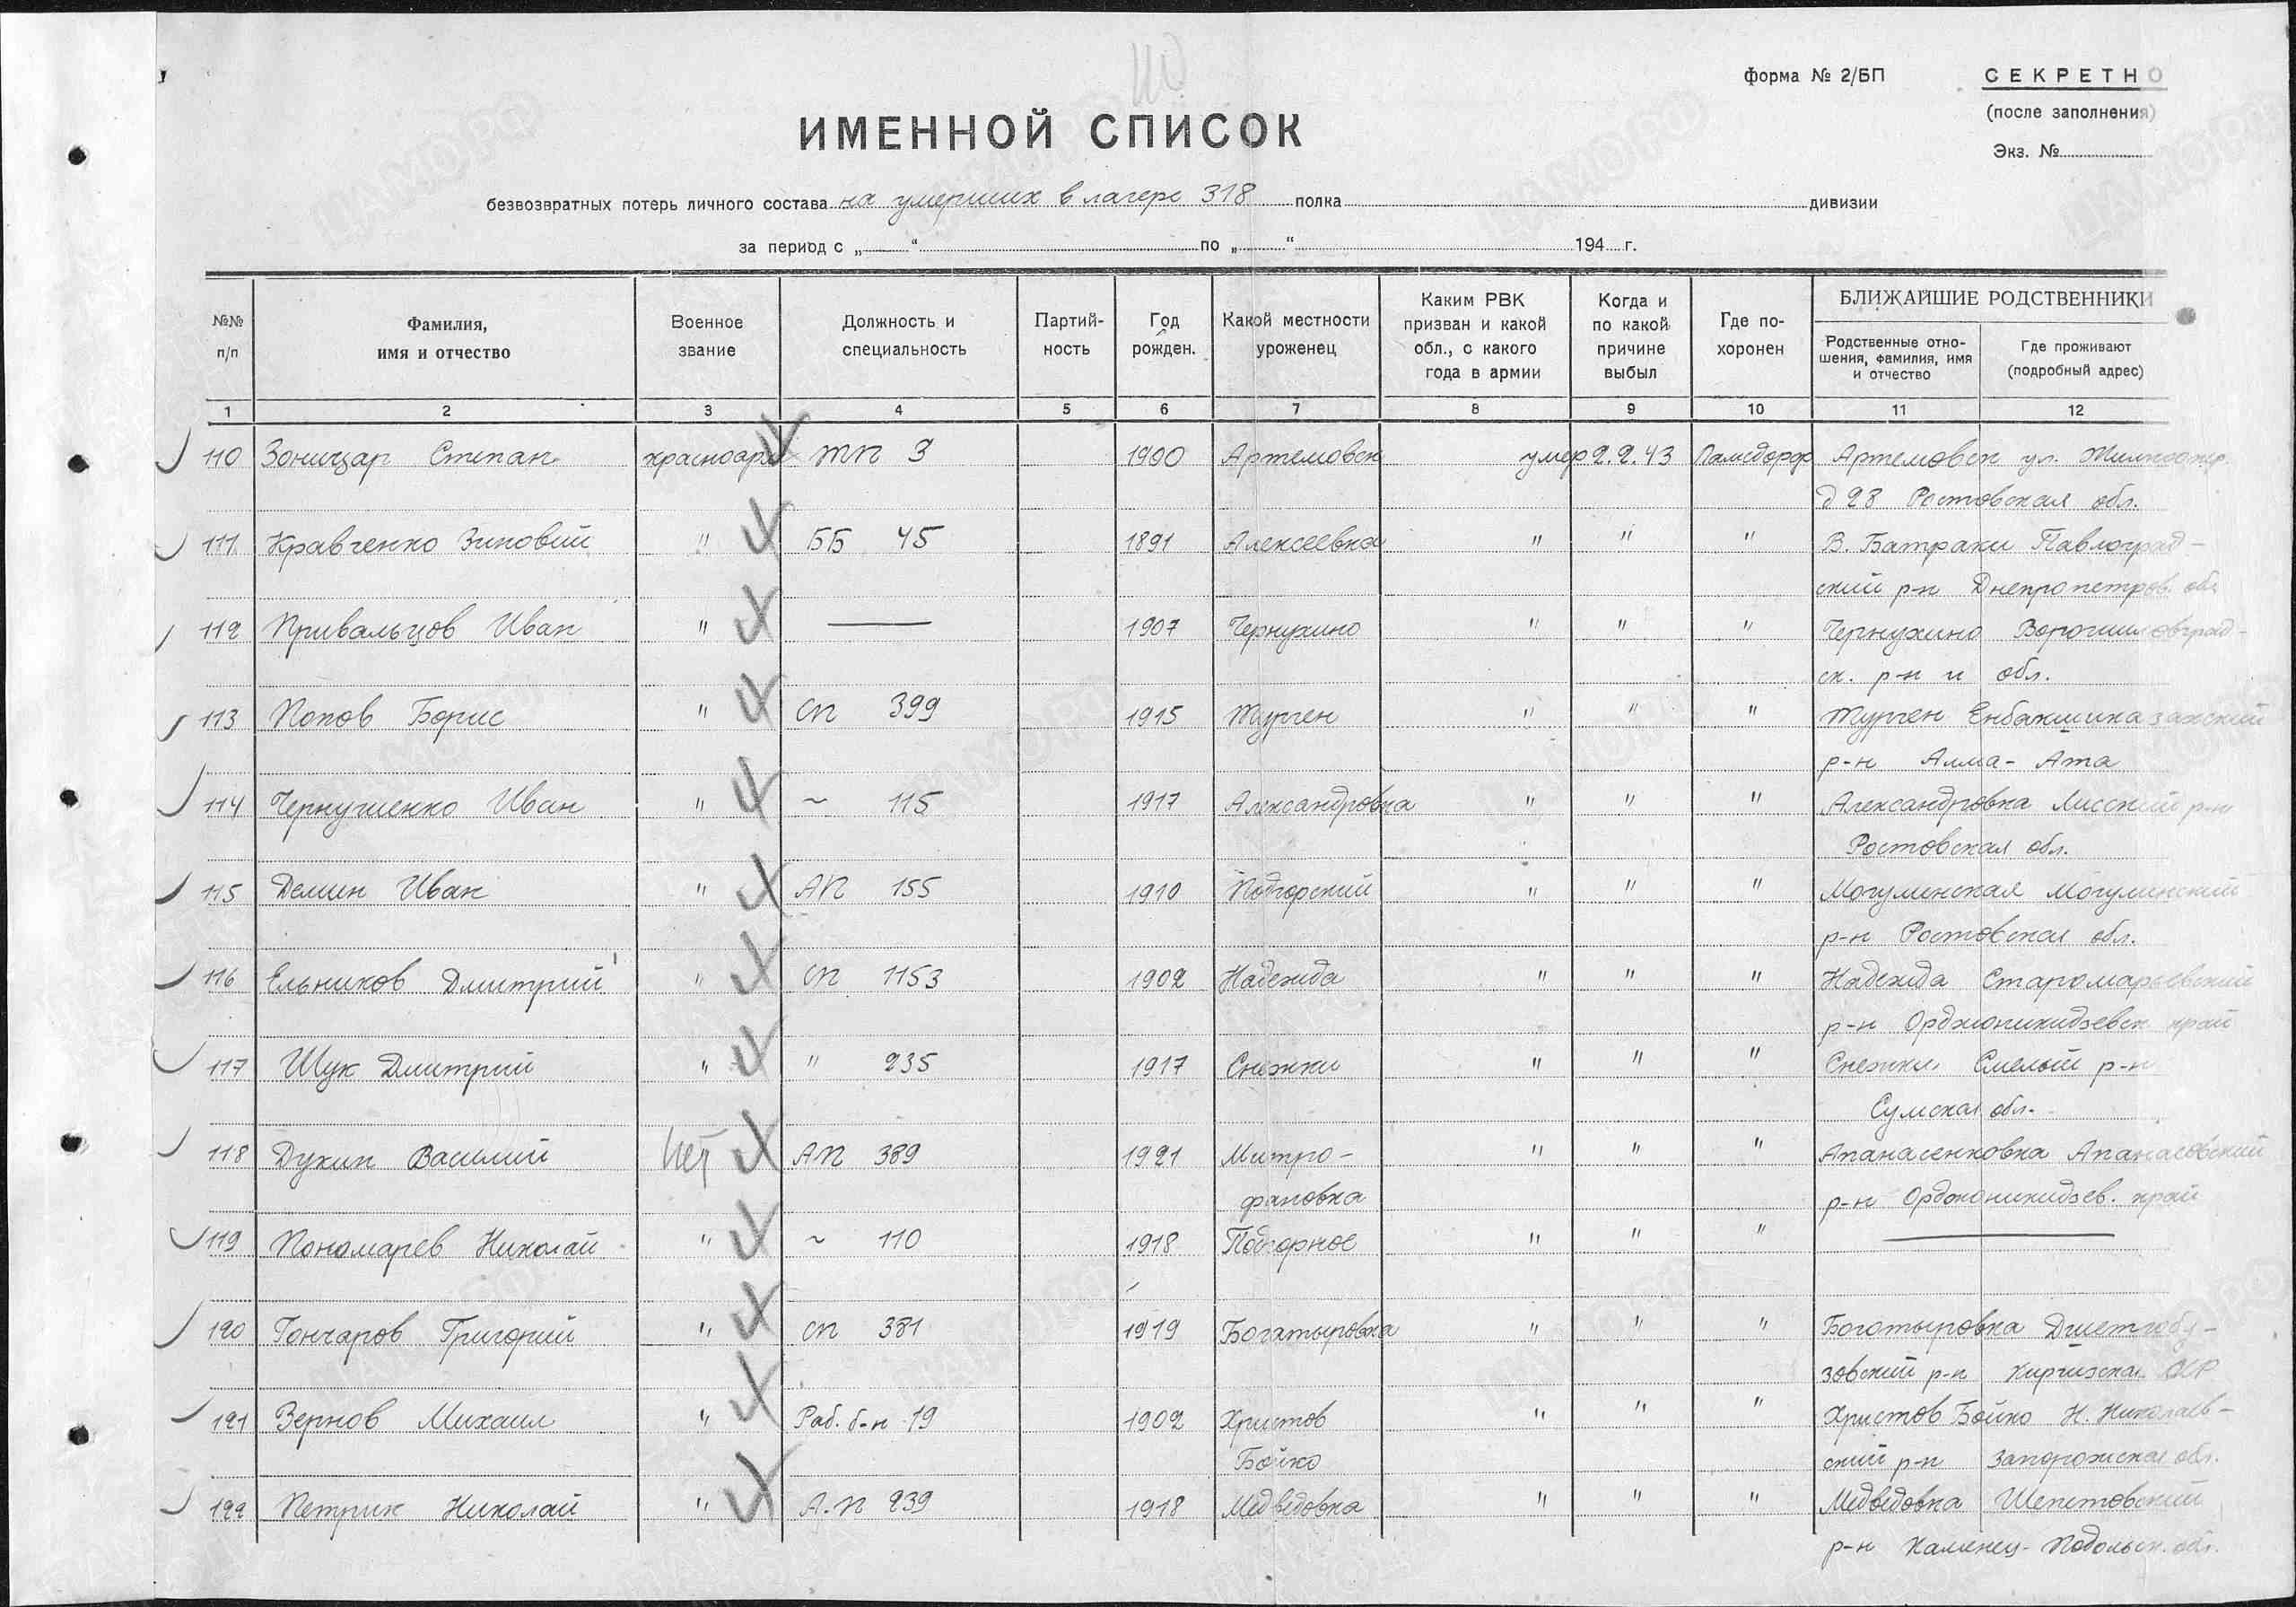 форма № 2/БП
СЕКРЕТНО
(после заполнения)
Экз. №
ИМЕННОЙ СПИСОК
безвозвратных потерь личного состава на умерших в лагере 318 полка дивизии
за период с „ “ по „ “ 194 г.
№№ п/п
Фамилия, имя и отчество
Военное звание
Должность и специальность
Партий-ность
Год рожден.
Какой местности уроженец
Каким РВК призван и какой обл., с какого года в армии
Когда и по какой причине выбыл
Где по-хоронен
БЛИЖАЙШИЕ РОДСТВЕННИКИ
Родственные отно-шения, фамилия, имя и отчество
Где проживают (подробный адрес)
1 2 3 4 5 6 7 8 9 10 11 12
110 Степан красноарм 1900 Артемовск умер 2.2.43 Ламсдорф Артемовск ул.
д 28 Ростовская обл.
111 Кравченко Зиновий " ББ 45 1891 Алексеевка " " " В. Батраки Павлоград-
ский р-н Днепропетров. обл
112 Привальцов Иван " — 1907 Чернухино " " " Чернухино Ворошиловград-
ск. р-н и обл.
113 Попов Борис " СП 399 1915 " " "
р-н Алма-Ата
114 Иван " ~ 115 1917 Александровка " " " Александровка р-н
Ростовская обл.
115 Демин Иван " АП 155 1910 Подгорский " " "
р-н Ростовская обл.
116 Ельников Дмитрий " СП 1153 1902 Надежда " " " Надежда Старомарьевский
р-н Орджоникидзевск край
117 Щук Дмитрий " " 235 1917 Снежки " " " Снежки Смелый р-н
Сумская обл.
118 Духин Василий нет АП 389 1921 Митро- " " " Апанасенковка
фановка р-н Орджоникидзев. край
119 Пономарев Николай " ~ 110 1918 Подгорное " " " —
120 Гончаров Григорий " СП 381 1919 Богатыровка " " " Боготыровка
зовский р-н
121 Зернов Михаил " Раб. б-н 19 1902 Христов " " " Христов Бойко Н. Николаев-
Бойко ский р-н Запорожская обл.
122 Петрик Николай " А.П 239 1918 Медведовка " " " Медведовка Шепетовский
р-н Каменец-Подольск. обл.